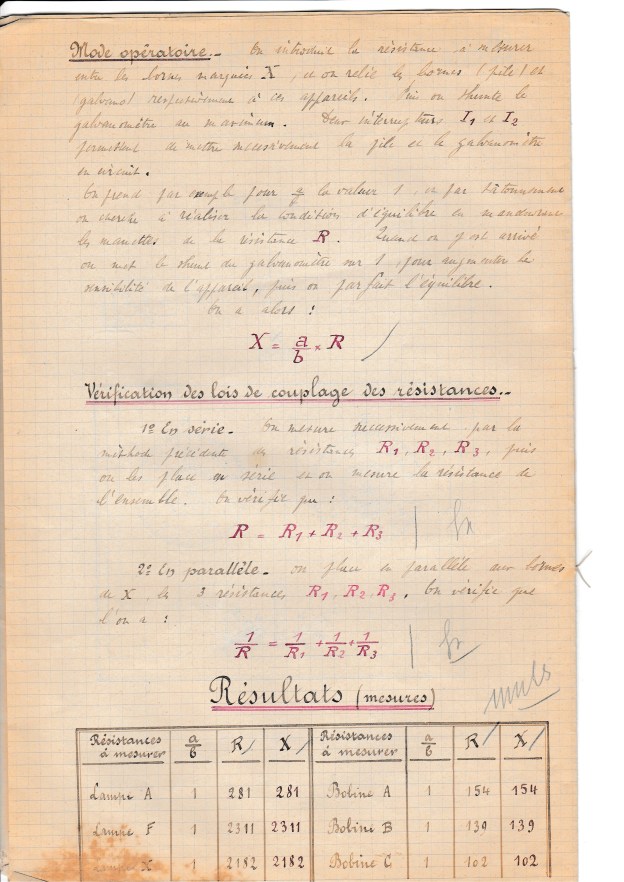 Mode opératoire._ On introduit la résistance à mesurer
entre les bornes marquées X, et on relie les bornes (pile) et
(galvano) respectivement à ces appareils. Puis on shunte le
galvanomètre au maximum. Deux interrupteurs I1 et I2
permettent de mettre successivement la pile et le galvanomètre
en circuit.
On prend par exemple pour a/b la valeur 1, et par tâtonnement
on cherche à réaliser la condition d'équilibre en manœuvrant
les manettes de la résistance R. Quand on y est arrivé
on met le shunt du galvanomètre sur 1, pour augmenter la
sensibilité de l'appareil, puis on parfait l'équilibre.
On a alors :
X = a/b × R
Vérification des lois de couplage des résistances._
1º En série._ On mesure successivement par la
méthode précédente des résistances R1, R2, R3, puis
on les place en série et on mesure la résistance de
l'ensemble. On vérifie que :
R = R1 + R2 + R3
2º En parallèle._ on place en parallèle aux bornes
de X les 3 résistances R1, R2, R3. On vérifie que
l'on a :
1/R = 1/R1 + 1/R2 + 1/R3
Résultats (mesures)
Résistances à mesurer a/b R X Résistances à mesurer a/b R X
Lampe A 1 281 281 Bobine A 1 154 154
Lampe F 1 2311 2311 Bobine B 1 139 139
Lampe X 1 2182 2182 Bobine C 1 102 102